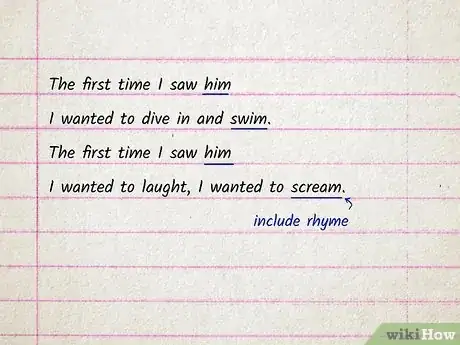 The first time I saw him
I wanted to dive in and swim.
The first time I saw him
I wanted to laught, I wanted to scream.
include rhyme
wikiHow